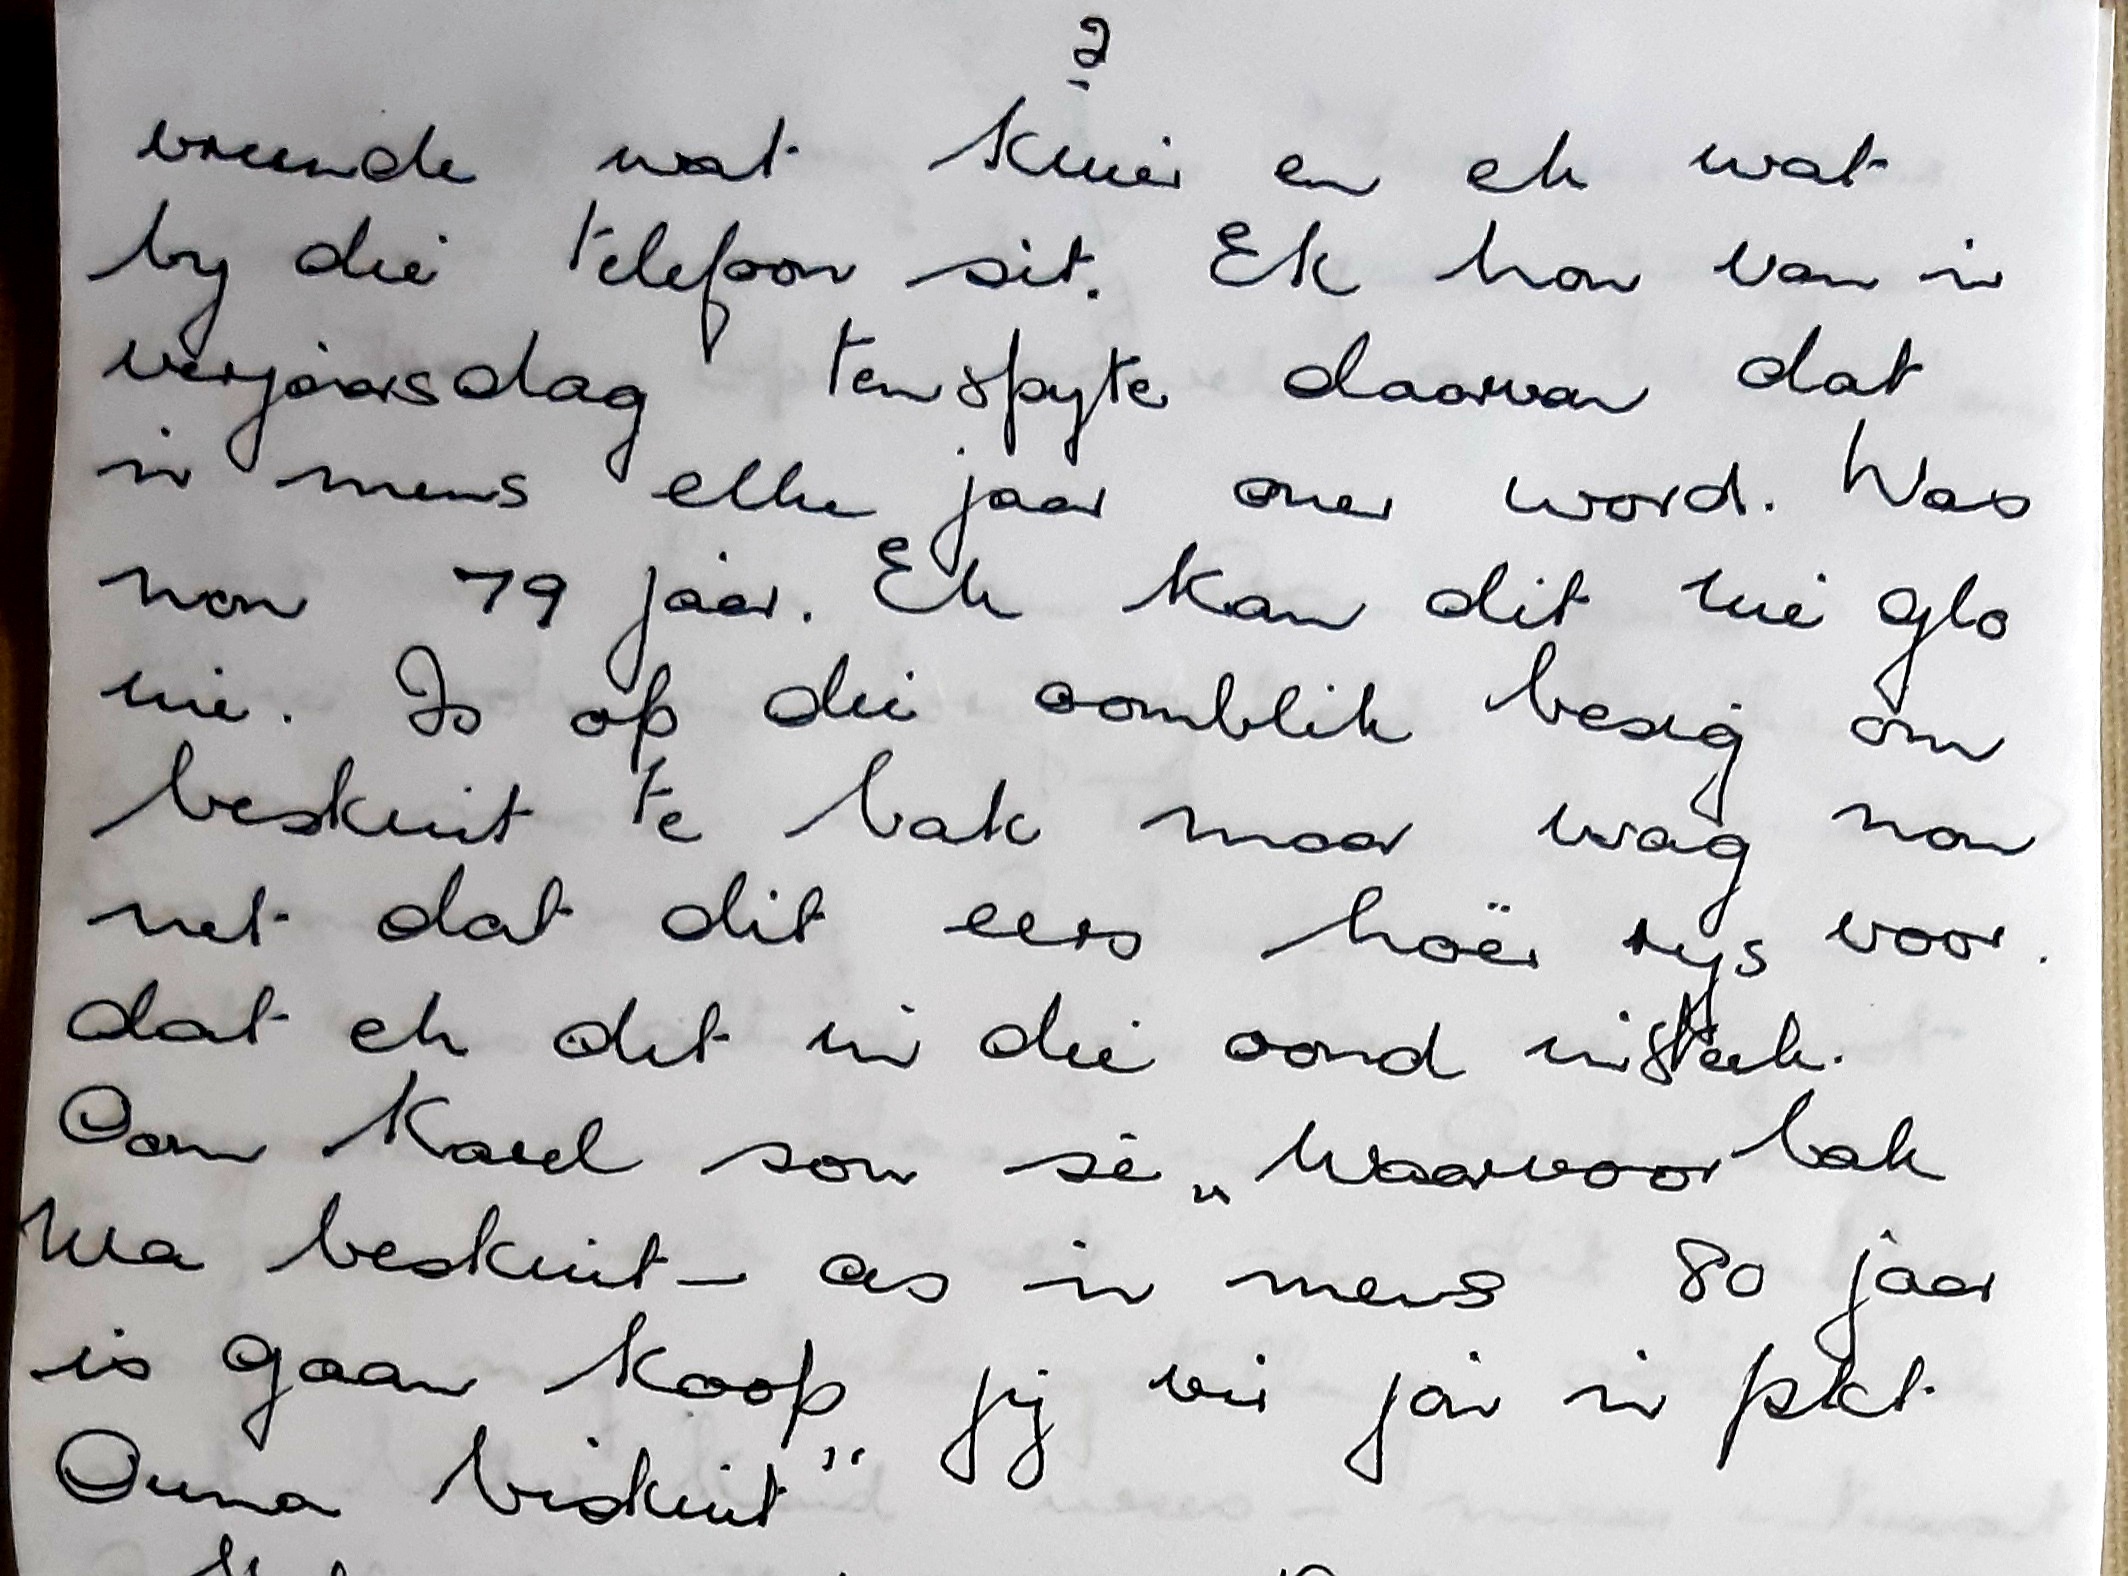 2
vriende wat kuier en ek wat
by die telefoon sit. Ek hou van 'n
verjaarsdag tenspyte daarvan dat
'n mens elke jaar ouer word. Was
nou 79 jaar. Ek kan dit nie glo
nie. Is op die oomblik besig om
beskuit te bak maar wag nou
net dat dit eers hoër rys voor-
dat ek dit in die oond insteek.
Oom Karel sou sê „Waarvoor bak
Ma beskuit – as 'n mens 80 jaar
is gaan koop jij vir jou 'n pkt
Ouma biskuit"